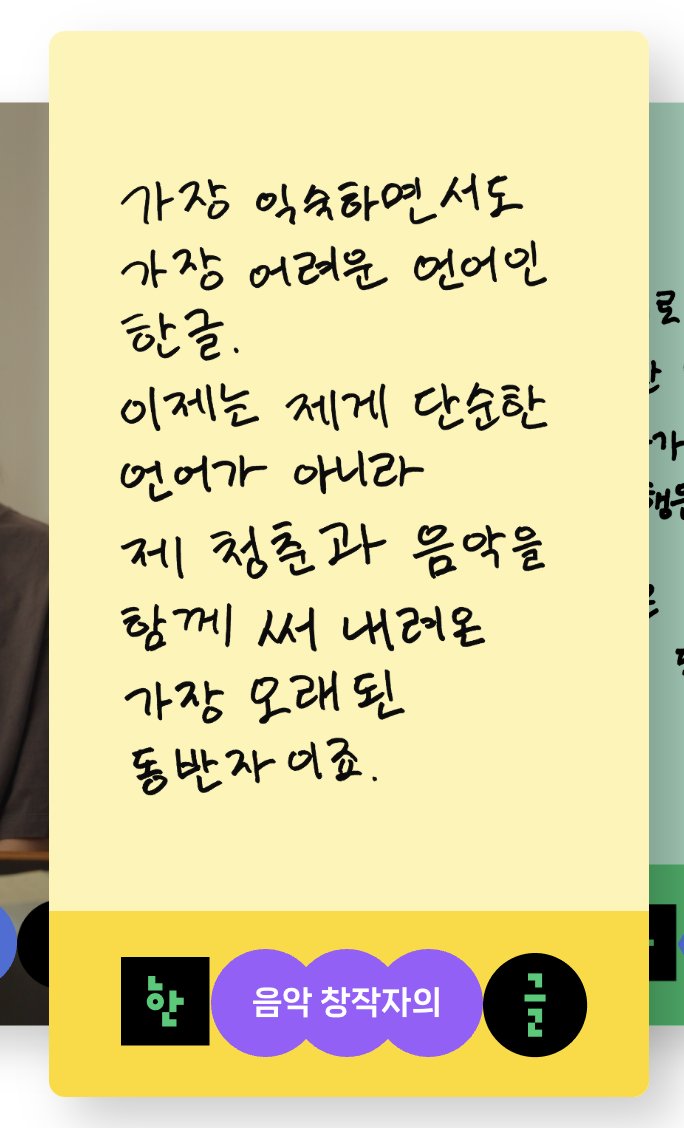 가장 익숙하면서도
가장 어려운 언어인
한글.
이제는 제게 단순한
언어가 아니라
제 청춘과 음악을
함께 써 내려온
가장 오래된
동반자이죠.
한 음악 창작자의 글
로